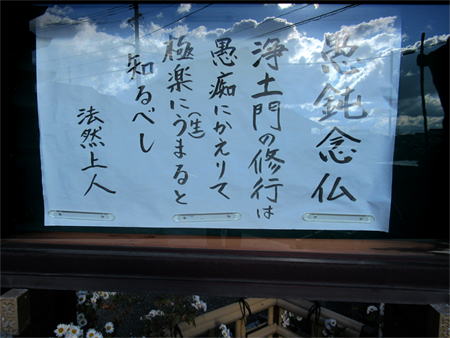 愚鈍念仏
浄土門の修行は
愚痴にかえりて
極楽にうまると
(生)
知るべし
法然上人